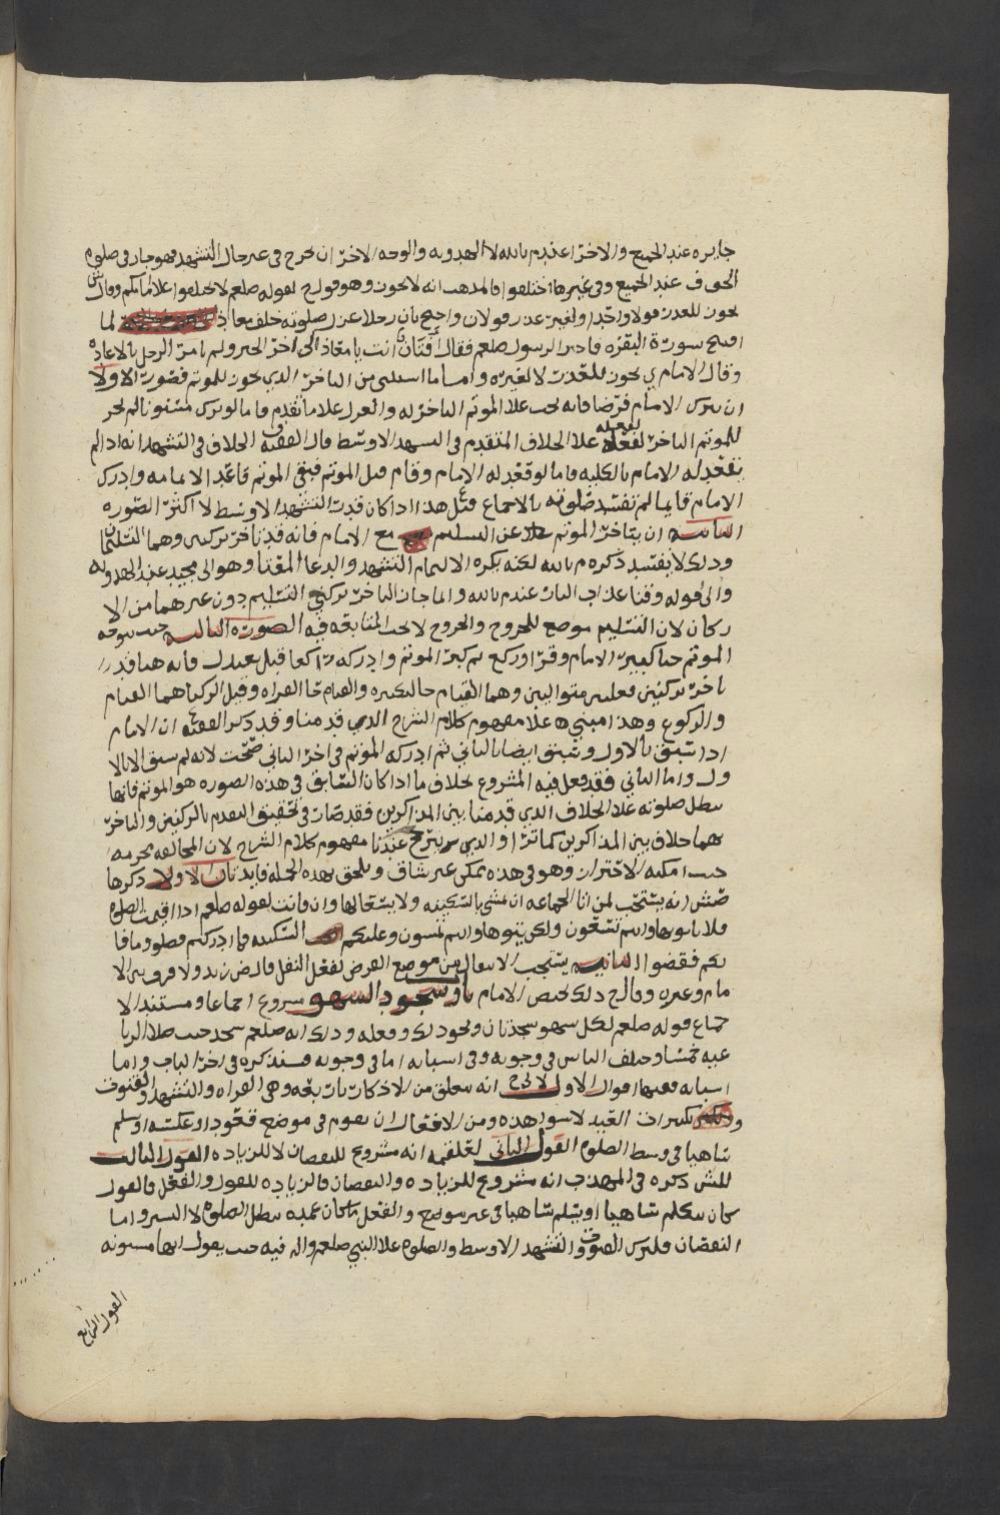 جايره عند الجميع والاخر اعند م بالله لا الهدويه والوجه الاخر ان يخرج في غير حال التشهد فهو جار في صلوة
الخوف عند الجميع وفي غيرها اختلفوا فالمذهب انه لا يجوز وهو قول ح لقوله صلعم لا تختلفوا على امامكم وقال ش
يجوز للعذر قولا واحدا ولغير عذر قولان واحتج بان رجلا عزل صلوته خلف معاذ لما
افتتح سورة البقره فاخبر الرسول صلعم فقال افتان انت يا معاذ الى اخر الخبر ولم يامر الرجل بالاعاده
وقال الامام ي يجوز للعذر لا لغيره واما ما استثنى من التاخر الذي يجوز للموتم فصور الاولا
ان يترك الامام فرضا فانه يجب على الموتم التاخر له والعزل على ما تقدم فاما لو ترك مسنونا لم يجز
للموتم التاخر لفعله على الخلاف المتقدم في التشهد الاوسط قال الفقيه ف الخلاف في التشهد انه اذا لم
يقعد له الامام بالكليه فاما لو قعد له الامام وقام قبل الموتم فبقي الموتم قاعدا لاتمامه وادرك
الامام قايما لم تفسد صلوته بالاجماع ومثل هذا اذا كان قدر التشهد الاوسط لا اكثر الصوره
الثانيه ان يتاخر الموتم عن التسليم مع الامام فانه قد تاخر بركنين وهما التسليمتان
وذلك لا يفسد ذكره م بالله لكنه يكره الا لتمام التشهد والدعا المعتاد وهو الى مجيد عند الهدويه
والى قوله وقنا عذاب النار عند م بالله وانما جاز التاخر بركني التسليم دون غيرهما من الا
ركان لان التسليم موضع للخروج والخروج لا يجب المتابعه فيه الصورة الثالثه حيث توجه
الموتم حتا كبر الامام وقرا وركع ثم كبر الموتم وادركه راكعا قبل يعتدل فانه هنا قد
تاخر بركنين فعليين متواليين وهما القيام حال تكبيره والقيام حال القراه وقيل الركنا هما القيام
والركوع وهذا مبني على مفهوم كلام الشرح الذي قدمنا وقد ذكر الفقيه ان الامام
اذا سبق بالاول وسبق ايضا بالثاني ثم ادركه الموتم في اخر الثاني صحت لانه لم يسبق الا بالا
ول واما الثاني فقد فعل فيه المشروع بخلاف ما اذا كان السابق في هذه الصوره هو الموتم فانها
تبطل صلوته على الخلاف الذي قدمنا بين المذاكرين فقد صار في تحقيق التقدم بالركنين والتاخر
بهما خلاف بين المذاكرين كما ترا والذي يترجح عندنا مفهوم كلام الشرح لان المخالفه محرمه
حيث امكنه الاحتراز وهو في هذه ممكن غير شاق ويلحق بهذه الجمله فايدتان الاولا ذكرها
ض ش انه يستحب لمن اتا الجماعه ان يمشي بالسكينه ولا يستعجل لها وان فاتت لقوله صلعم اذا اقيمت الصلوة
فلا تاتوها وانتم تسعون ولكن ايتوها وانتم تمشون وعليكم السكينه فما ادركتم فصلوا وما فا
تكم فقضوا الثانيه يستحب الانتقال من موضع الفرض لفعل النفل قال ض زيد ولا فرق بين الا
مام وغيره وقال ح ذلك يختص الامام باب وسجود السهو مشروع اجماعا ومستند الا
جماع قوله صلعم لكل سهو سجدتان ونحو ذلك وفعله وذلك انه صلعم سجد حيث صلا الربا
عيه خمسا وختلف الناس في وجوبه وفي اسبابه اما في وجوبه فسنذكره في اخر الباب واما
اسبابه ففيها اقوال الاول لابي ح انه يتعلق من الاذكار باربعه وهي القراه والتشهد والقنوت
وتكبيرات العيد لا سوا هذه ومن الافعال ان يقوم في موضع قعود او عكسه او سلم
ساهيا في وسط الصلوة القول الثاني لعلقمه انه مشروع للنقصان لا للزياده القول الثالث
للش ذكره في المهذب انه مشروع للزياده والنقصان فالزياده للقول والفعل فالقول
كان يتكلم ساهيا او يسلم ساهيا في غير موضع والفعل ما كان عمده يبطل الصلوة لا اليسير واما
النقصان فلترك القنوت والتشهد الاوسط والصلوة على النبي صلعم واله فيه حيث يقول انها مسنونه
القول الرابع